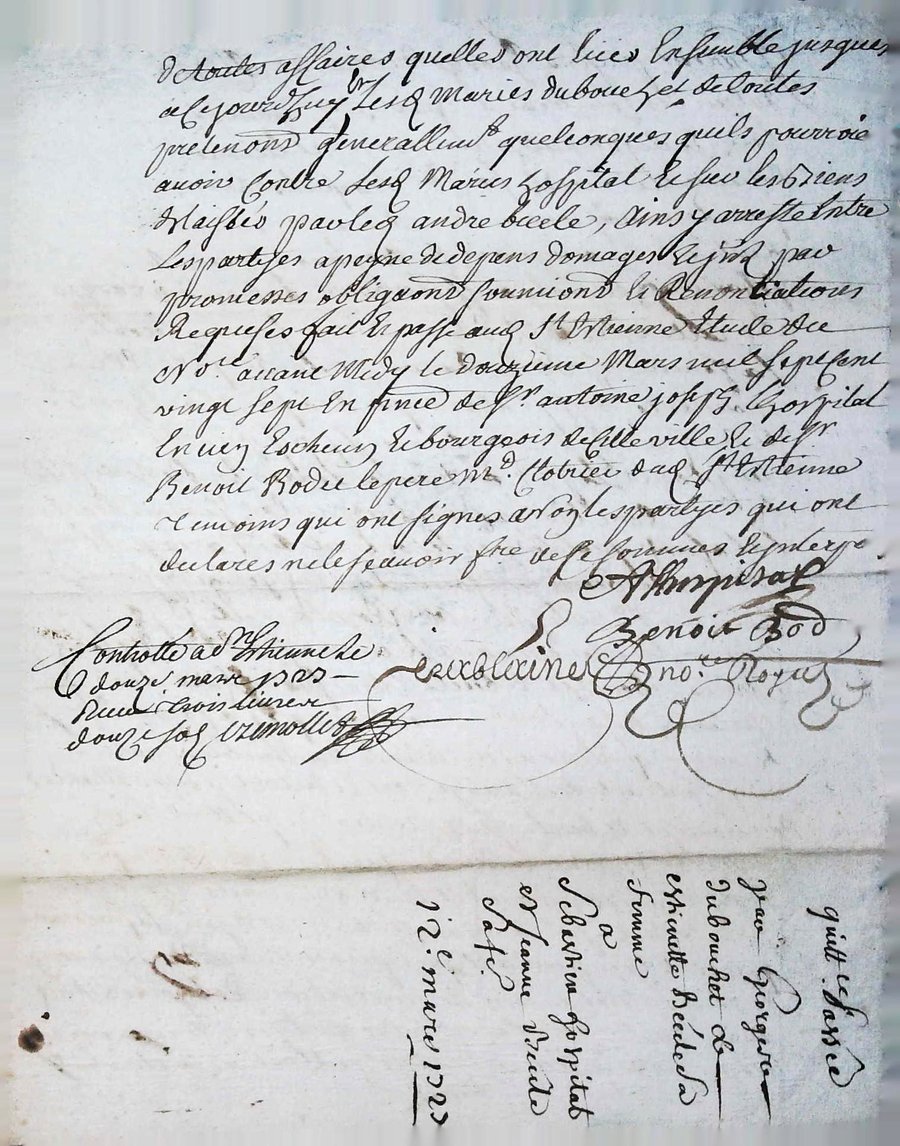 de toutes affaires quelles ont liées Ensemble jusques
a Cejourd'huy Lesd Mariés dubouchet de toutes
pretenons generallemt quelconques quils pourroie
avoir Contre Lesd Mariés hospital Et sur les Biens
delaissés par led andré berle, Ainsy arresté Entre
Les partyes a peyne de depens domages Et jnts par
promesses obligaons soumions Et Renontiations
Requises fait Et passé aud St Etienne Etude du
Nore avant Midy le douzieme Mars mil sept Cent
vingt sept En pnce de Sr antoine joseph hospital
Entien Eschevin Et bourgeois de Cette ville Et de Sr
Benoit Rodet le pere md Clotrier dud St Etienne
Temoins qui ont signes a Non les partyes qui ont
declarés ne le scavoir fre de Ce sommes Et jnterpe.
Alhospital
Benoit Rod
nore Royal
Controllé a St Etienne Le
douze. mars 1727
Receu trois livres
douze sols
quittce passée
par George
dubouchet Et
estiennette Béele Sa
femme
a
Sebastien hospital
et Jeanne Béele
Safe.
12.e mars 1727